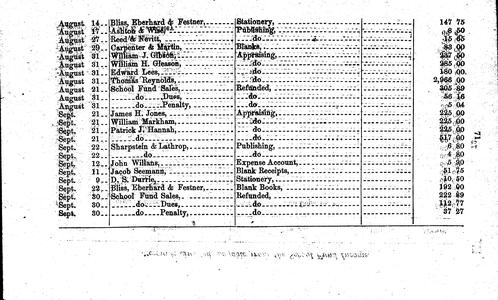 August 14 Bliss, Eberhard & Festner, Stationery, 147 75
August 17 Ashton & Wise, Publishing, 8 50
August 27 Reed & Nevitt, do 15 65
August 29 Carpenter & Martin, Blanks, 83 00
August 31 William J. Gibson, Appraising, 237 00
August 31 William H. Gleason, do 285 00
August 31 Edward Lees, do 180 00
August 31 Thomas Reynolds, do 2,966 00
August 21 School Fund Sales, Refunded, 305 89
August 31 do Dues, do 56 16
August 31 do Penalty, do 5 04
Sept. 21 James H. Jones, Appraising, 225 00
Sept. 9 William Markham, do 225 00
Sept. 21 Patrick J. Hannah, do 225 00
Sept. 21 do do 617 00
Sept. 22 Sharpstein & Lathrop, Publishing, 6 80
Sept. 22 do do 4 80
Sept. 12 John Willans, Expense Account, 5 20
Sept. 11 Jacob Seemann, Blank Receipts, 51 75
Sept. 9 D. S. Durrie, Stationery, 10 50
Sept. 22 Bliss, Eberhard & Festner, Blank Books, 192 00
Sept. 30 School Fund Sales, Refunded, 222 89
Sept. 30 do Dues, do 112 77
Sept. 30 do Penalty, do 37 27